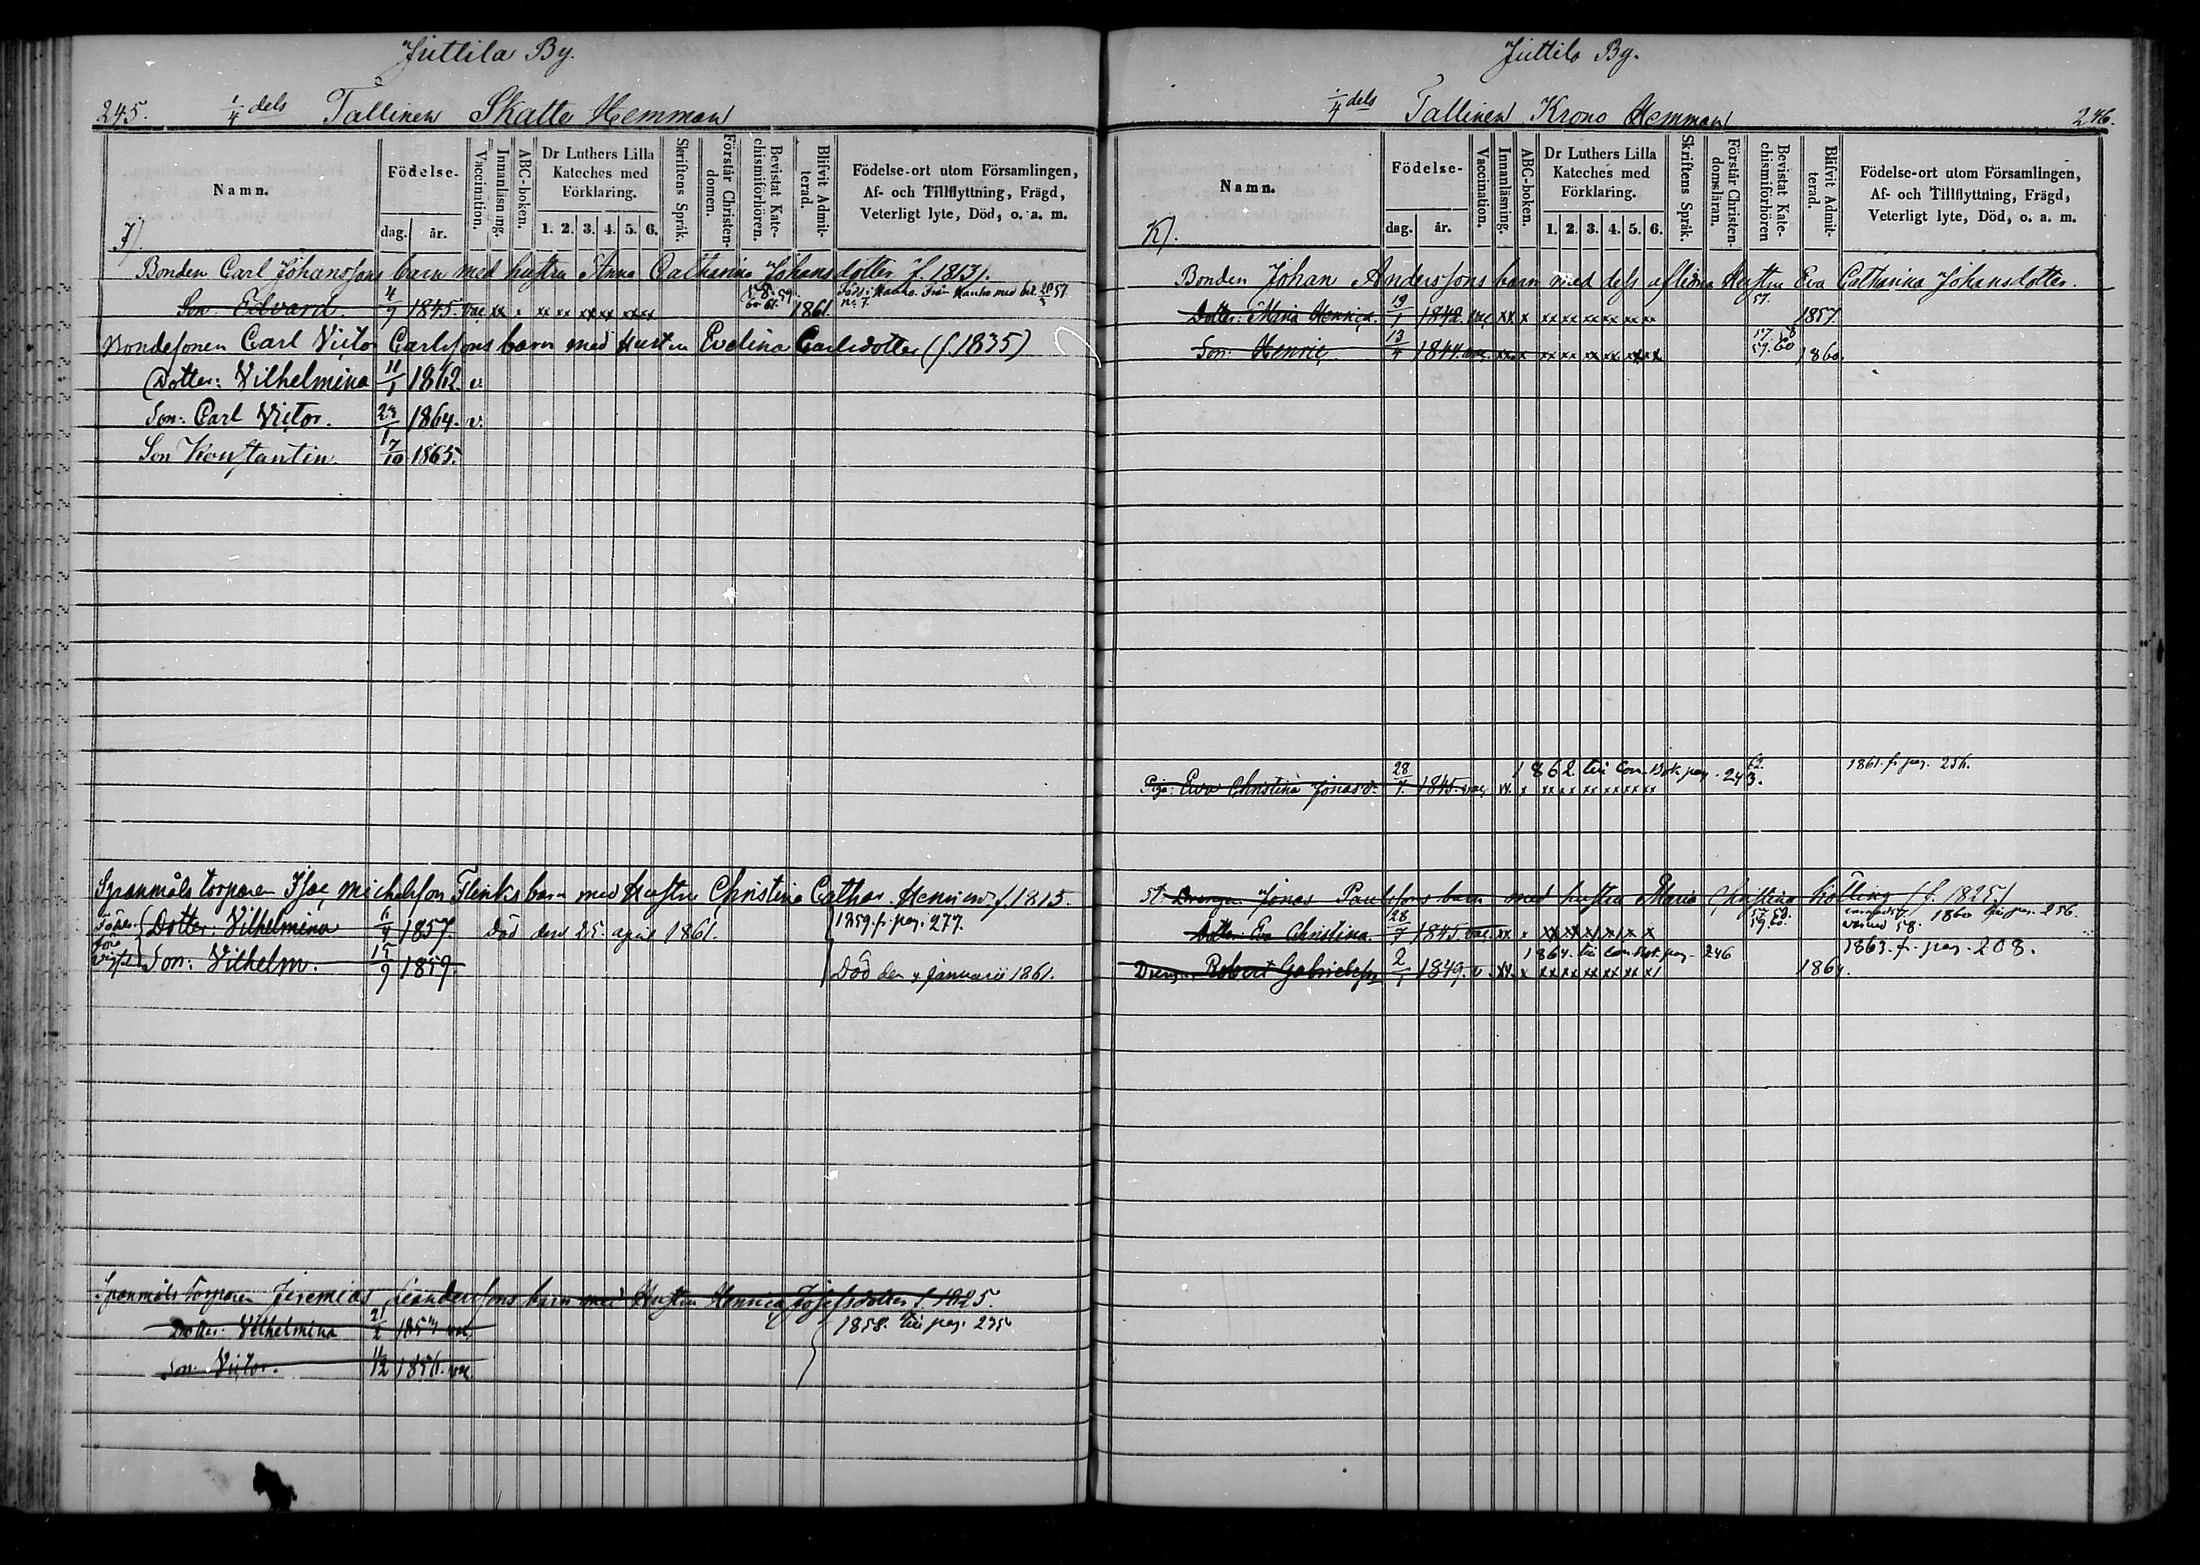 Juttila By.
245. 1/4 dels Tallinen Skatte Hemman
Namn.
Födelse-
dag. år.
Vaccination.
Innanläsning.
ABC-boken.
Dr Luthers Lilla Kateches med Förklaring.
1. 2. 3. 4. 5. 6.
Skriftens Språk.
Förstår Christendomen.
Bevistat Katechismiförhören.
Blifvit Admitterad.
Födelse-ort utom Församlingen, Af- och Tillflyttning, Frägd, Veterligt lyte, Död, o. a. m.
Bonden Carl Johanssons barn med hustru Anna Catharina Johansdotter f. 1813).
Son Edvard. 4/9 1845. vac xx x xx xx xx xx xx xx 58. 59 60. 61. 1861.
Bondesonen Carl Victor Carlssons barn med Hustru Evelina Carlsdotter (f. 1835)
Dotter: Vilhelmina 11/1 1862. v.
Son: Carl Victor. 23/1 1864. v.
Son Konstantin. 7/10 1865.
Spanmåls torparen Isac Michelsson Flinks barn med Hustru Christina Cathar. f. 1815.
Dotter: Vilhelmina 6/4 1857. Död den 25. april 1861. 1859. f. pag. 277.
Son: Vilhelm. 15/9 1859. Död den 4 januarii 1861.
Spanmåls Torparen Jeremias Leanderssons barn med Hustru Henrica Josefsdotter f. 1825.
Dotter: Vilhelmina 2/2 vac. 1858. till pag. 235
Son: Victor. 1/12 1856. vac.
Juttila By.
1/4 dels Tallinen Krono Hemman 246.
Namn.
Födelse-
dag. år.
Vaccination.
Innanläsning.
ABC-boken.
Dr Luthers Lilla Kateches med Förklaring.
1. 2. 3. 4. 5. 6.
Skriftens Språk.
Förstår Christendomsläran.
Bevistat Katechismiförhören
Blifvit Admitterad.
Födelse-ort utom Församlingen, Af- och Tillflyttning, Frägd, Veterligt lyte, Död, o. a. m.
K).
Bonden Johan Anderssons barn med dess aflidna Hustru Eva Catharina Johansdotter.
Dotter: Maria Henrica. 19/1 1842. vac xx x xx xx xx xx xx xx 57. 1857.
Son: Henric, 13/4 1844. vac. xx x xx xx xx xx xx xx 57 58 59. 60 1860.
1862. till Com. Bok pag. 243. 62. 1861. fr. pag. 256.
Piga: Eva Christina Jonasd. 28/7 1845. vac, xx x xx xx xx xx xx xx
Drengen Jonas Paulssons barn med hustru Maria Christina Kölling (f. 1825)
Dotter: Eva Christina. 28/7 1845. vac. xx x 57 58. 59. 60. 1860 till pag. 256.
1864. till Com. Bok pag. 246 1863. fr. pag. 208.
Drengen Robert Gabrielsson 2/1 1849. v. xx. x xx xx xx xx xx x 1864.